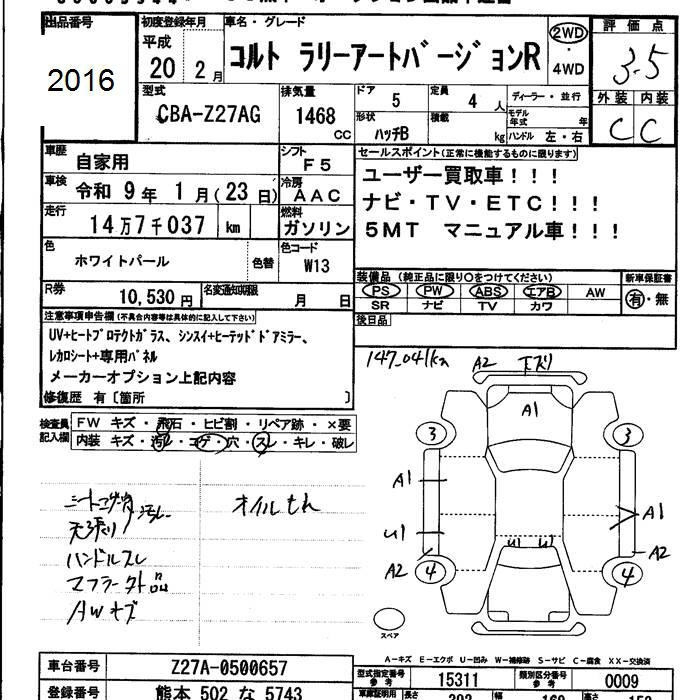 出品番号 初度登録年月 車名・グレード 評価点
2016
平成 20 2月
コルト ラリーアートバージョンR
2WD
・
4WD
3.5
型式 排気量 ドア 5 定員 4人 ディーラー・並行 外装 内装
CBA-Z27AG 1468 cc
形状 ハッチB 積載 kg
モデル年式 年
ハンドル 左・右
C C
車歴 自家用 シフト F5
セールスポイント(正常に機能するものに限ります)
車検 令和 9年 1月(23日) 冷房 AAC
ユーザー買取車!!!
ナビ・TV・ETC!!!
5MT マニュアル車!!!
走行 14万7千037 km 燃料 ガソリン
色 ホワイトパール 色替 色コード W13
装備品(純正品に限り○をつけてください) 新車保証書
PS PW ABS エアB AW 有・無
SR ナビ TV カワ
R券 10,530円 名変通知期限 月 日
後日品
注意事項申告欄(不具合内容等は具体的に記入して下さい)
UV+ヒートプロテクトガラス、シンスイ+ヒーテッドドアミラー、
レカロシート+専用パネル
メーカーオプション上記内容
修復歴 有〔箇所 〕
検査員記入欄
FW キズ・飛石・ヒビ割・リペア跡・×要
内装 キズ・汚れ・コゲ・穴・スレ・キレ・破レ
147,041km
A2 下ズリ
A1
3 3
A1
A1
U1
U1 U1
A2
A2
4 4
スペア
オイルモレ
天張り
ハンドルスレ
マフラー外品
AWキズ
A-キズ E-エクボ U-凹み W-補修跡 S-サビ C-腐食 XX-交換済
車台番号 Z27A-0500657
型式指定番号 参考 15311 類別区分番号 参考 0009
登録番号 熊本 502 な 5743